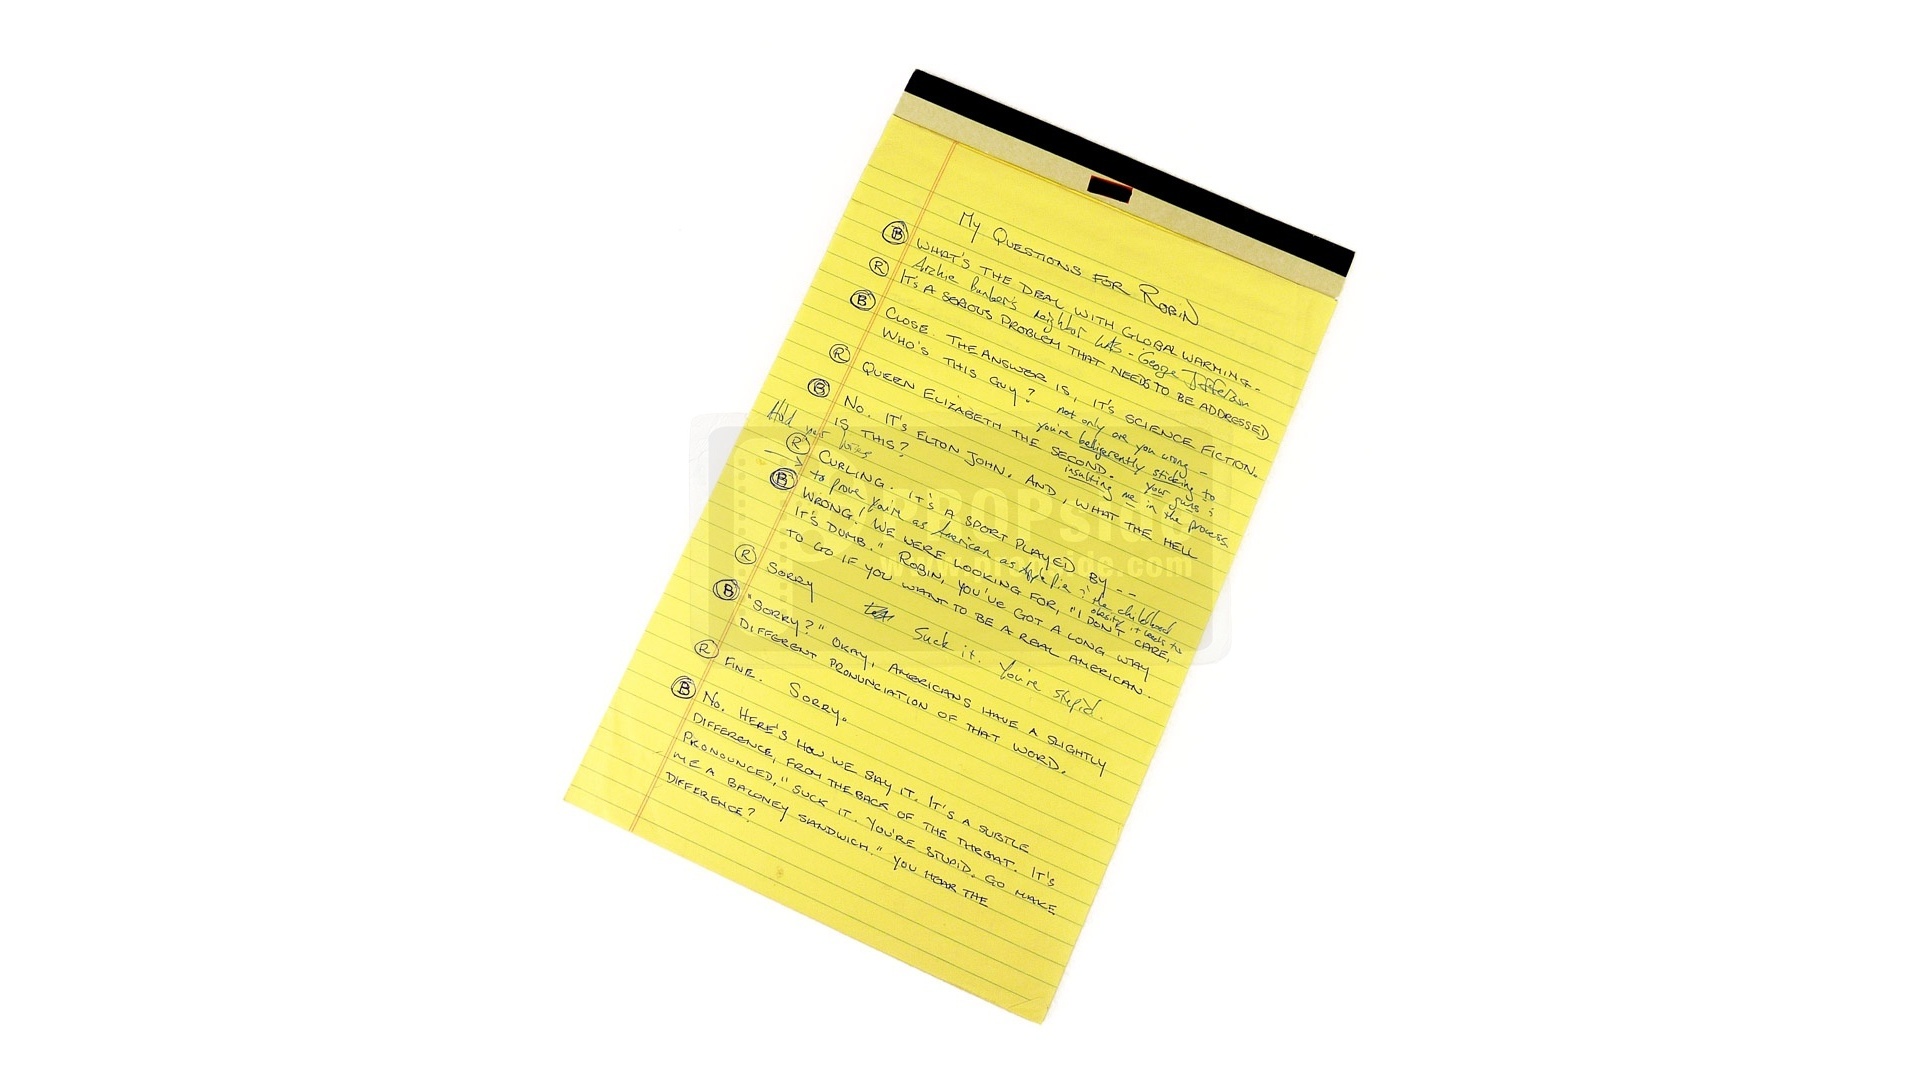 My Questions for Robin
B WHAT'S THE DEAL WITH GLOBAL WARMING -
Archie Bunker's neighbor was - George Jefferson
R IT'S A SERIOUS PROBLEM THAT NEEDS TO BE ADDRESSED
B CLOSE. THE ANSWER IS, IT'S SCIENCE FICTION.
WHO'S THIS GUY?
not only are you wrong -
you're beligerently sticking to
your guns &
insulting me in the process
R QUEEN ELIZABETH THE SECOND.
B NO. IT'S ELTON JOHN. AND, WHAT THE HELL
IS THIS?
Hold your
R CURLING. IT'S A SPORT PLAYED BY --
to prove you're as American as Apple Pie & the childhood
obesity it leads to
B WRONG! WE WERE LOOKING FOR, "I DON'T CARE,
IT'S DUMB." ROBIN, YOU'VE GOT A LONG WAY
TO GO IF YOU WANT TO BE A REAL AMERICAN.
R SORRY
Suck it. You're stupid.
B "SORRY?" OKAY, AMERICANS HAVE A SLIGHTLY
DIFFERENT PRONUNCIATION OF THAT WORD.
R FINE. SORRY.
B NO. HERE'S HOW WE SAY IT. IT'S A SUBTLE
DIFFERENCE, FROM THE BACK OF THE THROAT. IT'S
PRONOUNCED, "SUCK IT. YOU'RE STUPID. GO MAKE
ME A BALONEY SANDWICH." YOU HEAR THE
DIFFERENCE?
PROPside
www.propside.com